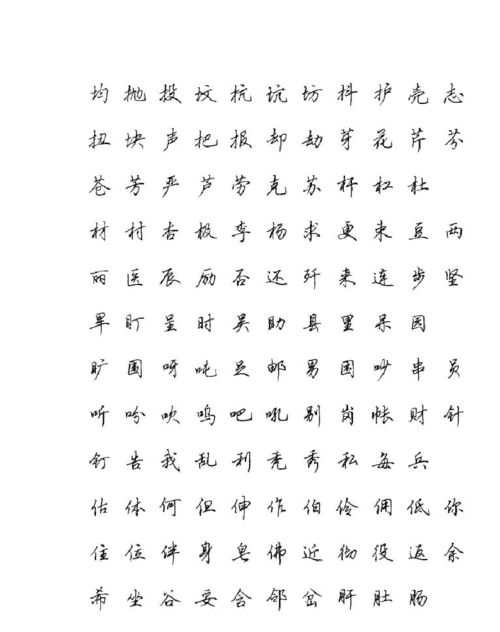 均 抛 投 坟 抗 坑 坊 抖 护 壳 志
扭 块 声 把 报 却 劫 芽 花 芹 芬
苍 芳 严 芦 劳 克 苏 杆 杠 杜
材 村 杏 极 李 杨 求 更 束 豆 两
丽 医 辰 励 否 还 歼 来 连 步 坚
旱 盯 呈 时 吴 助 县 里 呆 园
旷 围 呀 吨 足 邮 男 困 吵 串 员
听 吩 吹 呜 吧 吼 别 岗 帐 财 针
钉 告 我 乱 利 秃 秀 私 每 兵
估 体 何 但 伸 作 伯 伶 佣 低 你
住 位 伴 身 皂 佛 近 彻 役 返 余
希 坐 谷 妥 含 邻 岔 肝 肚 肠